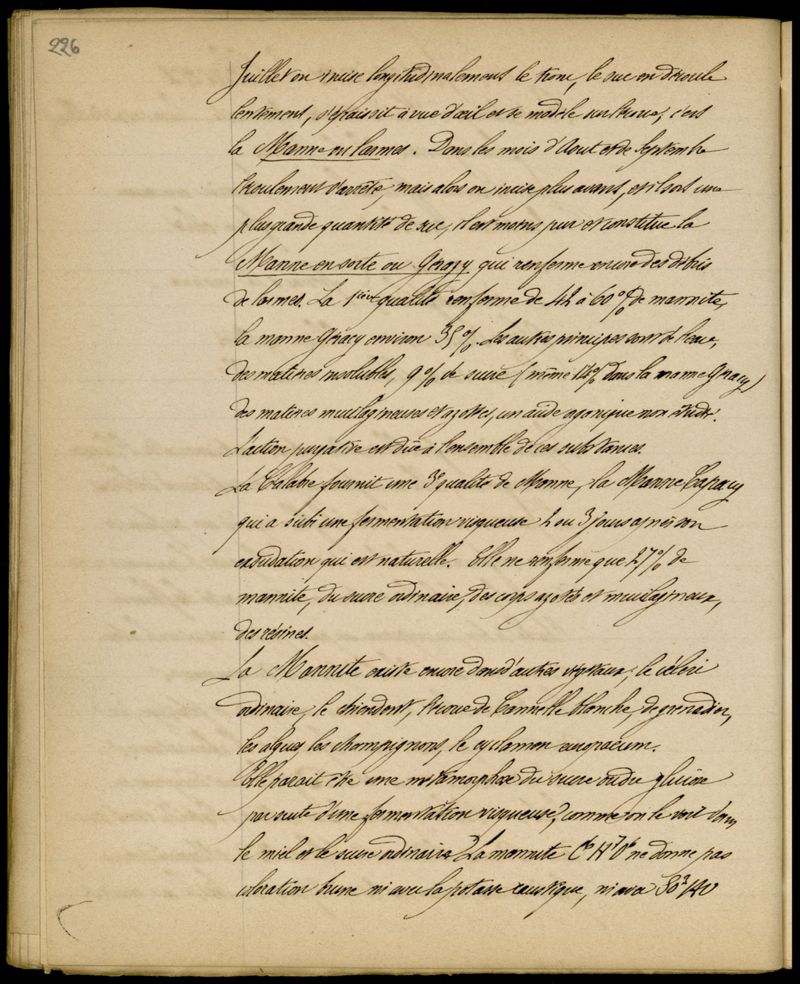 226
Juillet on incise longitudinalement le tronc, le suc en découle
lentement, s'épaissit à vue d'œil et se modèle sur l'écorce, c'est
la Manne en larmes. Dans les mois d'Aout et de Septembre
l'écoulement s'arrête, mais alors on incise plus avant, et il sort une
plus grande quantité de suc, il est moins pur et constitue la
Manne en sorte ou Géracy qui renferme encore des débris
de larmes. La 1ière qualité renferme de 42 à 60 % de mannite,
la manne Géracy environ 35 %. Les autres principes sont de l'eau,
des matières insolubles, 9 % de sucre (même 12% dans la manne Géracy)
des matières mucilagineuses et azotées, un acide organique non étudié.
L'action purgative est dûe à l'ensemble de ces substances.
La Calabre fournit une 3e qualité de Manne, la Manne Capacy
qui a subi une fermentation visqueuse 2 ou 3 jours après son
exsudation qui est naturelle. Elle ne renferme que 27 % de
mannite, du sucre ordinaire, des corps azotés et mucilagineux,
des résines.
La Mannite existe encore dans d'autres végétaux, le céleri
ordinaire, le chiendent, l'écorce de Cannelle blanche, de grenadier,
les algues les champignons, le cyclamen europaeum.
Elle parait être une métamorphose du sucre ou du glucose
par suite d'une fermentation visqueuse, comme on le voit dans
le miel et le sucre ordinaire. La mannite C6 H7 O6 ne donne pas
coloration brune ni avec la potasse caustique, ni avec SO3 HO